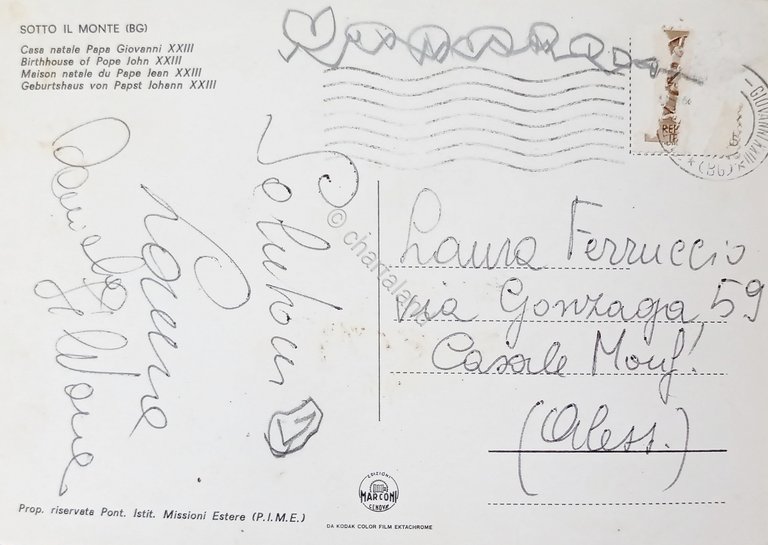 SOTTO IL MONTE (BG)
Casa natale Papa Giovanni XXIII
Birthhouse of Pope John XXIII
Maison natale du Pape Jean XXIII
Geburtshaus von Papst Johann XXIII
GIOVANNI XXIII
(BG)
Salutoni
Daniela
Laura Ferruccio
via Gonzaga 59
Casale Monf!
(Aless.)
© chartaland
EDIZIONI
MARCONI
GENOVA
Prop. riservata Pont. Istit. Missioni Estere (P.I.M.E.)
DA KODAK COLOR FILM EKTACHROME